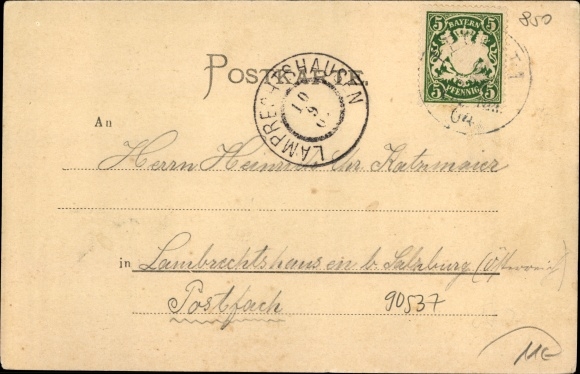 850
5 BAYERN 5
5 PFENNIG 5
POSTKARTE.
LAMPRECHTSHAUSEN
04
An
Herrn Heinrich Katzmaier
in Lambrechtshausen b. Salzburg (Österreich)
Postfach 90537